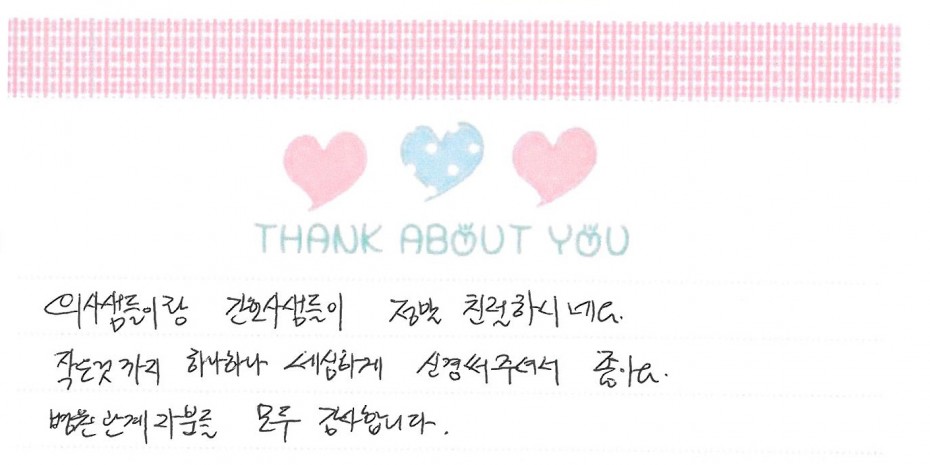 THANK ABOUT YOU
의사샘들이랑 간호사샘들이 정말 친절하시네요.
작은것까지 하나하나 세심하게 신경써주셔서 좋아요.
병원관계자분들 모두 감사합니다.